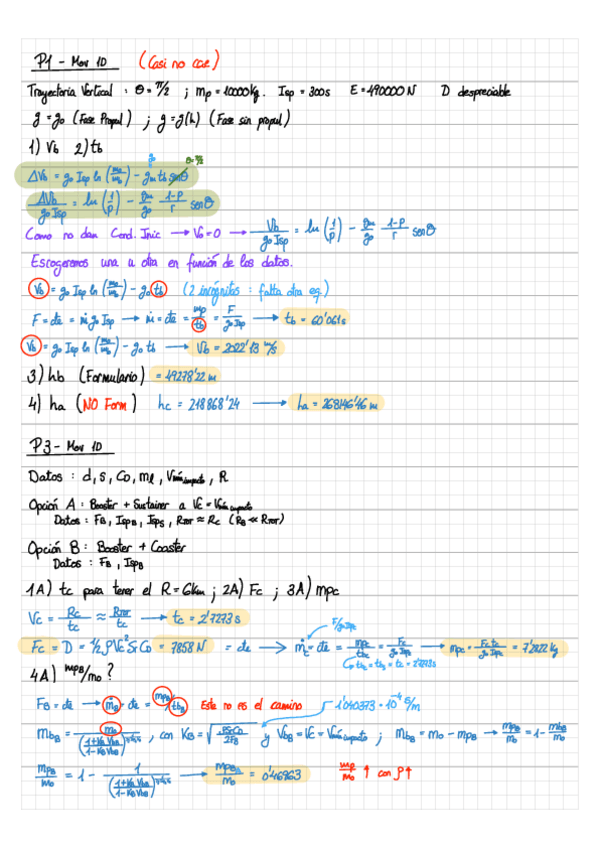 P1 - Mov 1D (Casi no cae)
Trayectoria Vertical : θ = π/2 ; mp = 10000 kg. Isp = 300s E = 490000 N D despreciable
g = g0 (Fase Propul) ; g = g(h) (Fase sin propul)
1) Vb 2) tb
ΔVb = g0 Isp ln (m0/mb) - gm tb senθ g0 θ = π/2
ΔVb/g0Isp = ln (1/p) - gm/g0 1-p/r senθ
Como no dan Cond. Inic → V0 = 0 → Vb/g0Isp = ln (1/p) - gm/g0 1-p/r senθ
Escogeremos una u otra en función de los datos.
Vb = g0 Isp ln (m0/mb) - g0 tb (2 incógnitas : falta otra eq.)
F = cte = ṁ g0 Isp → ṁ = cte = mp/tb = F/g0 Isp → tb = 60'061s
Vb = g0 Isp ln (m0/mb) - g0 tb → Vb = 2022'13 m/s
3) hb (Formulario) = 49278'22 m
4) ha (NO Form) hc = 218868'24 → ha = 268146'46 m
P3 - Mov 1D
Datos : d, s, CD, ml, Vmín impacto, R
Opción A : Booster + Sustainer a Vc = Vmín impacto
Datos : FB, IspB, IspS, RTOT ≈ RC (RB << RTOT)
Opción B : Booster + Coaster
Datos : FB, IspB
1A) tc para tener el R = 6km ; 2A) Fc ; 3A) mpc
Vc = Rc/tc ≈ RTOT/tc → tc = 2'7273 s
Fc = D = 1/2 ρVc²SCD = 7858 N = cte → ṁc = cte = mpc/tbc = Fc/g0 Isps → mpc = Fc tc/g0 Isps = 7'2822 kg
F/g0Isp
tbc = tbs = tc = 2'7273s
4A) mpB/m0 ?
FB = cte → ṁB = cte = mpB/tbB Este no es el camino 1'040373·10⁻⁴ s/m
mbB = m0/(1+KB VbB/1-KB VbB) , con KB = √ρSCD/2FB y VbB = Vc = Vmín impacto ; mbB = m0 - mpB → mpB/m0 = 1 - mbB/m0
mpB/m0 = 1 - 1/(1+KB VbB/1-KB VbB) → mpB/m0 = 0'46963 mp/m0 ↑ con ρ↑